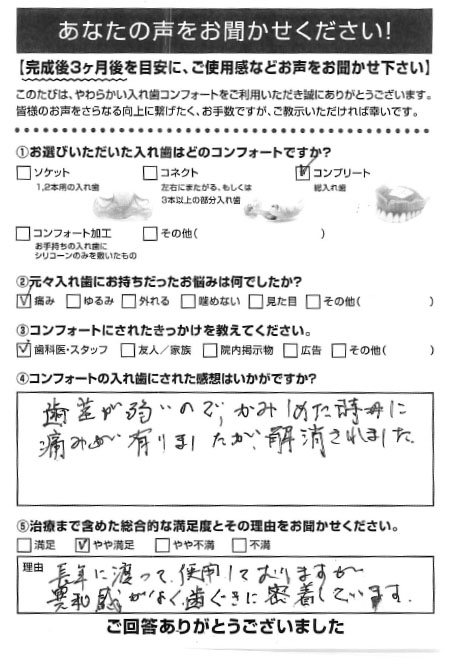 あなたの声をお聞かせください!
【完成後3ヶ月後を目安に、ご使用感などお声をお聞かせ下さい】
このたびは、やわらかい入れ歯コンフォートをご利用いただき誠にありがとうございます。
皆様のお声をさらなる向上に繋げたく、お手数ですが、ご教示いただければ幸いです。
①お選びいただいた入れ歯はどのコンフォートですか?
□ソケット □コネクト ☑コンプリート
1,2本用の入れ歯 左右にまたがる、もしくは 総入れ歯
3本以上の部分入れ歯
□コンフォート加工 □その他( )
お手持ちの入れ歯に
シリコーンのみを敷いたもの
②元々入れ歯にお持ちだったお悩みは何でしたか?
☑痛み □ゆるみ □外れる □噛めない □見た目 □その他( )
③コンフォートにされたきっかけを教えてください。
☑歯科医・スタッフ □友人/家族 □院内掲示物 □広告 □その他( )
④コンフォートの入れ歯にされた感想はいかがですか?
歯茎が弱いので、かみしめた時などに
痛みが有りましたが、解消されました。
⑤治療まで含めた総合的な満足度とその理由をお聞かせください。
□満足 ☑やや満足 □やや不満 □不満
理由 長年に渡って、使用しておりますが
異和感がなく、歯ぐきに密着しています。
ご回答ありがとうございました